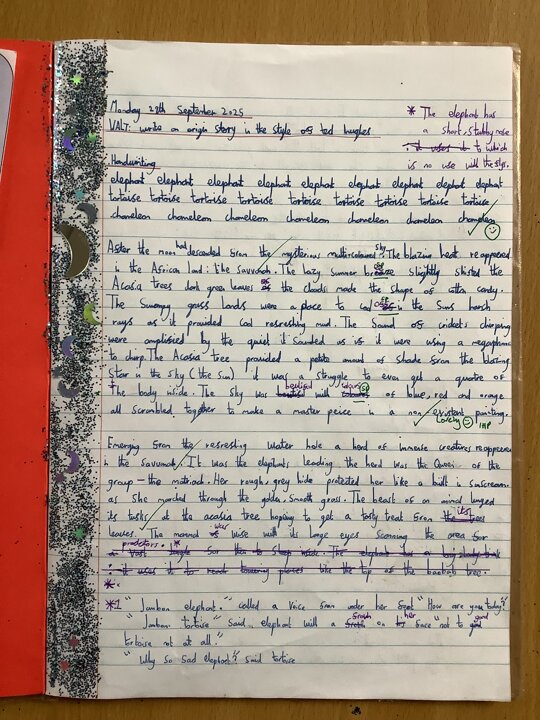 Monday 29th September 2025
WALT: write an origin story in the style of ted hughes
* The elephant has
a short, stubby nose
it uses it to which
is no use with the flys.
Handwriting
elephant elephant elephant elephant elephant elephant elephant elephant elephant
tortoise tortoise tortoise tortoise tortoise tortoise tortoise tortoise tortoise
chameleon chameleon chameleon chameleon chameleon chameleon chameleon
After the moon had descended from the mysterious multi-coloured sky. The blazing heat reappeared
in the African land: like savvanah. The lazy summer breeze slightly shifted the
Acasia trees dark green leaves as the clouds made the shape of cotton candy.
The Swaying grass lands were a place to cool off in the Suns harsh
rays as it provided cool refreshing mud. The Sound of crickets chirping
were amplified by the quiet it Sounded as if it were using a megaphone
to chirp. The Acasia tree provided a petite amount of shade from the blazing
Star in the sky (the Sun) it was a struggle to even get a quatre of
the body inside. The Sky was beutiful with colours of blue, red and orange
all scrambled together to make a master peice in a non existent painting.
Lovely imp
Emerging from the refreshing water hole a herd of imense creatures reappeared
in the savvanah. It was the elephants leading the herd was the Queen of the
group - the matriach. Her rough, grey hide protected her like a built in sunscream
as She marched through the golden, smooth grass. The beast of an animal lunged
its tusks at the acasia tree hoping to get a tasty treat from its
leaves. The animal was wise with its large eyes Scanning the area for
predetors. *
like the top of the baobab tree.
*1 "Jambon elephant." called a voice from under her feet "How are you today?"
"Jambon tortoise" Said, elephant with a frown on her face "not to good
tortoise not at all."
"Why So Sad elephant"? Said tortoise